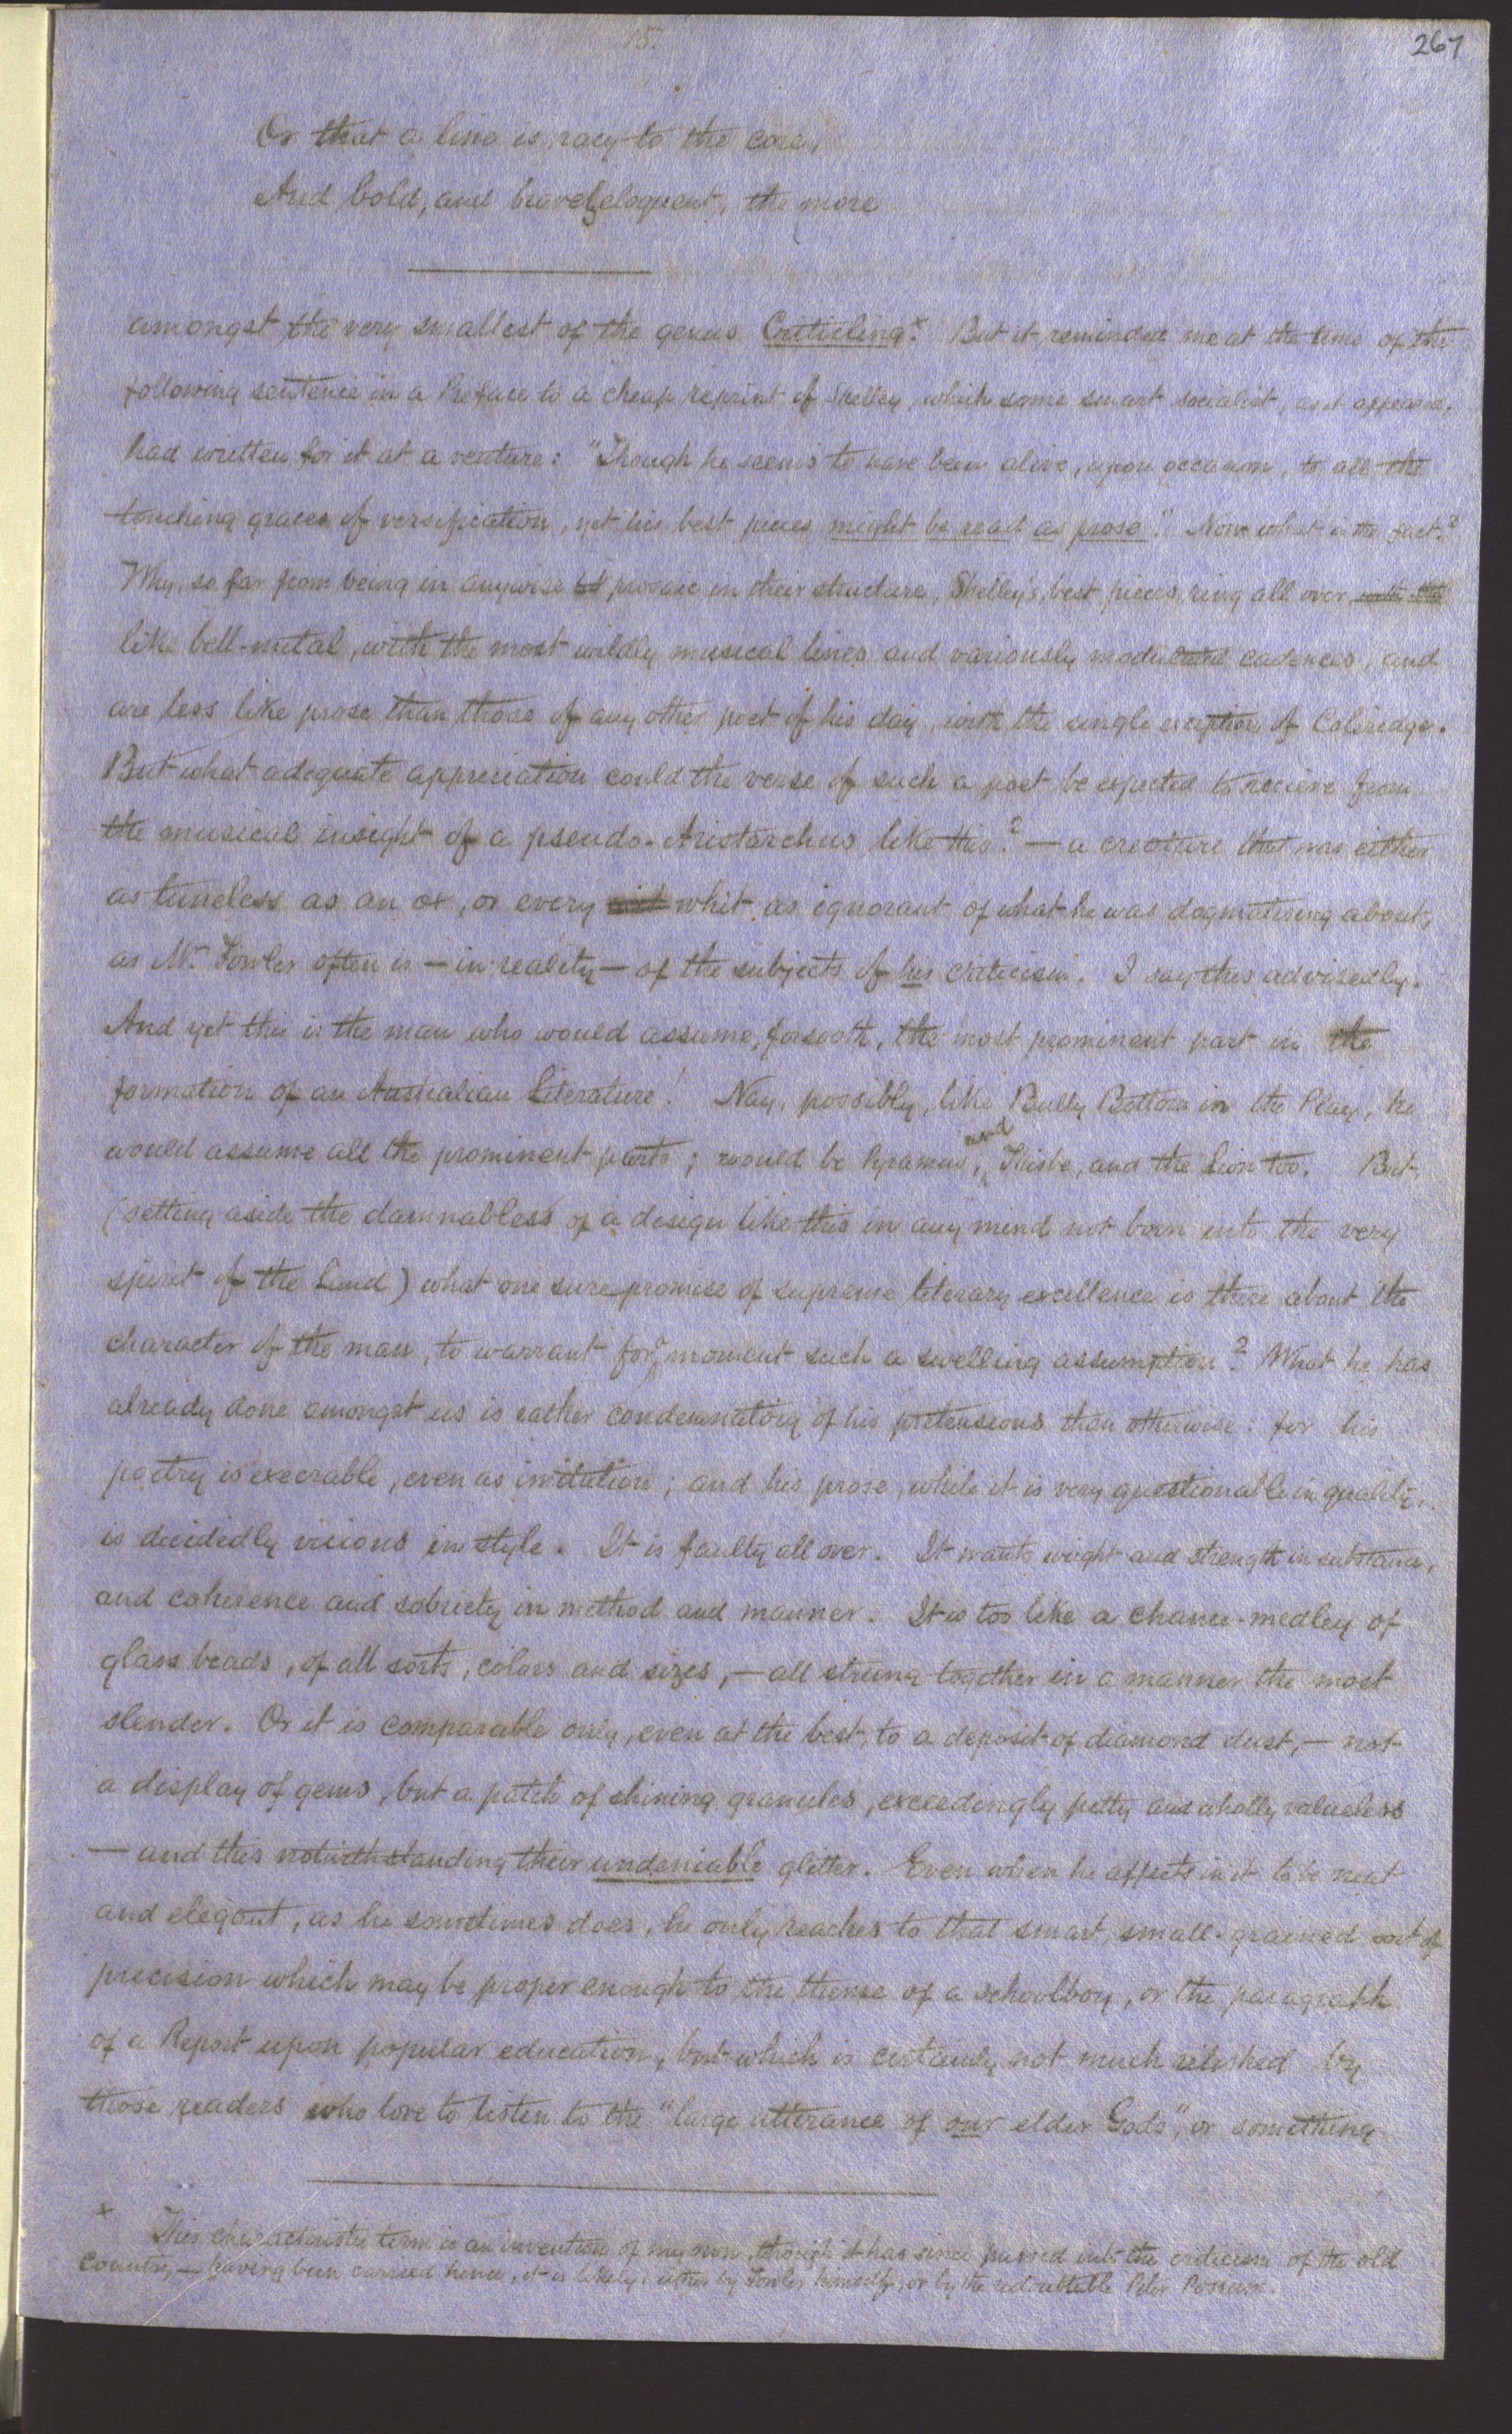 15.
267
Or that a line is racy to the core,
And bold, and bravely eloquent, the more
amongst the very smallest of the genus Criticling.x But it reminded me at the time of the
following sentence in a Preface to a cheap reprint of Shelley, which some smart socialist, as it appeared,
had written for it at a venture: "Though he seems to have been alive, upon occasion, to all the
touching graces of versification, yet his best pieces might be read as prose." Now what is the fact?
Why, so far from being in anywise prosaic in their structure, Shelley's best pieces ring all over
like bell-metal, with the most wildly musical lines and variously modulated cadences, and
are less like prose than those of any other poet of his day, with the single exception of Coleridge.
But what adequate appreciation could the verse of such a poet be expected to recieve from
the musical insight of a pseudo-Aristarchus like this? — a creature that was either
as tuneless as an ox, or every whit as ignorant of what he was dogmatising about,
as Mr. Fowler often is — in reality — of the subjects of his criticism. I say this advisedly.
And yet this is the man who would assume, forsooth, the most prominent part in the
formation of an Australian Literature! Nay, possibly, like Bully Bottom in the Play, he
would assume all the prominent parts; would be Pyramus, and Thisbe, and the Lion too. But,
(setting aside the damnabless of a design like this in any mind not born into the very
spirit of the Land) what one sure promise of supreme literary excellence is there about the
character of the man, to warrant for a moment such a swelling assumption? What he has
already done amongst us is rather condemnatory of his pretensions than otherwise: for his
poetry is execrable, even as imitation; and his prose, while it is very questionable in quality,
is decidedly vicious in style. It is faulty all over. It wants weight and strength in substance,
and coherence and sobriety in method and manner. It is too like a chance-medley of
glass beads, of all sorts, colors and sizes, — all strung together in a manner the most
slender. Or it is comparable only, even at the best, to a deposit of diamond dust, — not
a display of gems, but a patch of shining granules, exceedingly petty and wholly valueless
— and this notwithstanding their undeniable glitter. Even when he affects in it to be neat
and elegant, as he sometimes does, he only reaches to that smart, small-grained sort of
precision which may be proper enough to the theme of a schoolboy, or the paragraph
of a Report upon popular education, but which is certainly not much relished by
those readers who love to listen to the "large utterance of our elder Gods", or something
x This characteristic term is an invention of my own, though it has since passed into the criticism of the old
Country, — having been carried hence, it is likely, either by Fowler himself, or by the redoubtable Peter Possum.